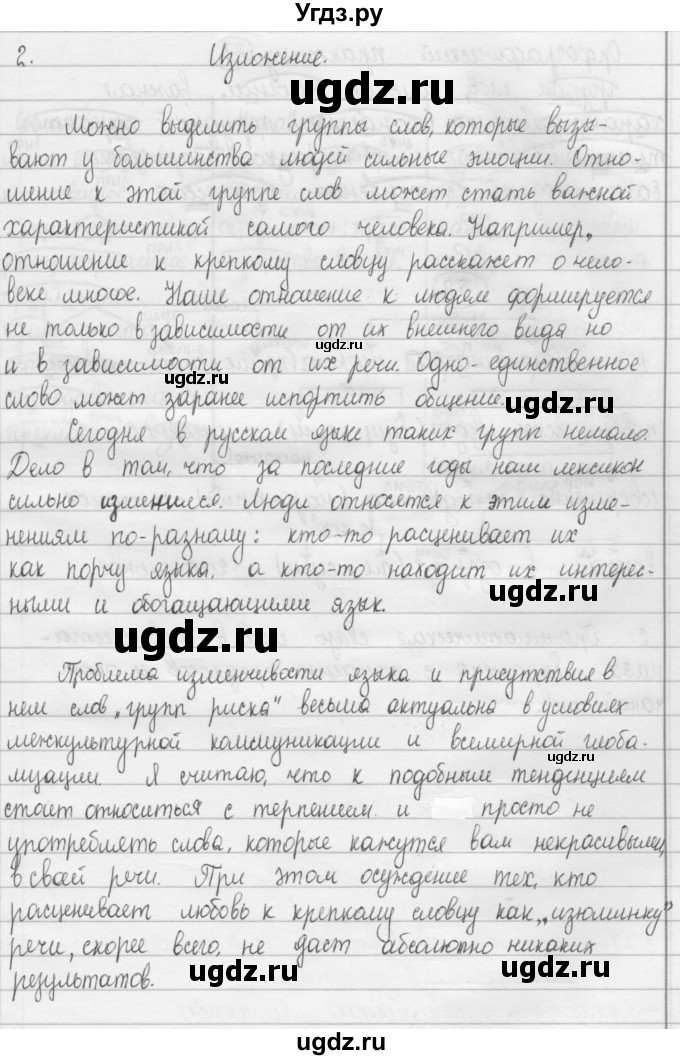 Угдз.ру
2. Изложение.
ugdz.ru
Можно выделить группы слов, которые вызы-
вают у большинства людей сильные эмоции. Отно-
шение к этой группе слов может стать важной
ugdz.ru
характеристикой самого человека. Например,
отношение к крепкому словцу расскажет о чело-
веке многое. Наше отношение к людям формируется
не только в зависимости от их внешнего вида но
и в зависимости от их речи. Одно-единственное
ugdz.ru
слово может заранее испортить общение.
ugdz.ru
Сегодня в русском языке таких групп немало.
Дело в том, что за последние годы наш лексикон
сильно изменился. Люди относятся к этим изме-
нениям по-разному: кто-то расценивает их
как порчу языка, а кто-то находит их интерес-
ugdz.ru
ными и обогащающими язык.
ugdz.ru
Проблема изменчивости языка и присутствия в
нем слов „групп риска“ весьма актуальна в условиях
межкультурной коммуникации и всемирной глоба-
ugdz.ru
лизации. Я считаю, что к подобным тенденциям
стоит относиться с терпением и просто не
употреблять слова, которые кажутся вам некрасивыми,
в своей речи. При этом осуждение тех, кто
расценивает любовь к крепкому словцу как „изюминку“
речи, скорее всего, не даст абсолютно никаких
результатов.
ugdz.ru
ugdz.ru
ugdz.ru